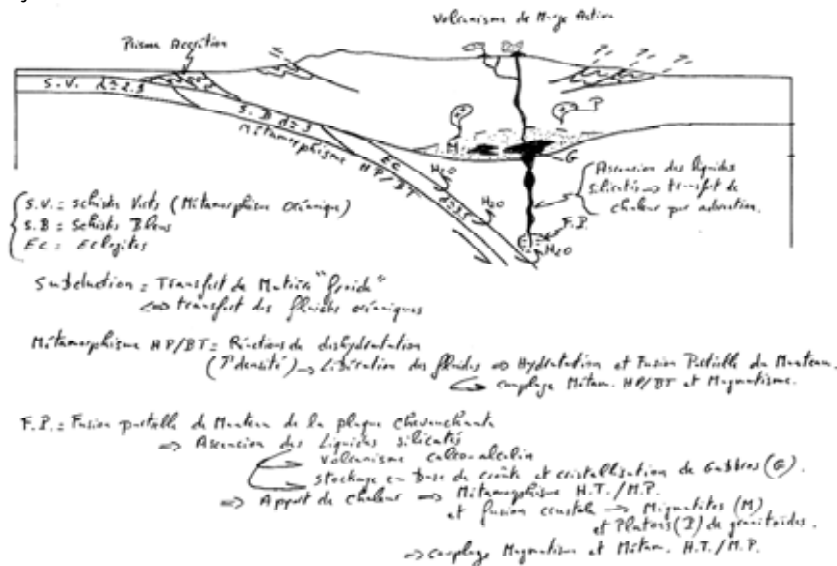 Volcanisme de Marge Active
Prisme Accrétion
S.V. d=2.9
S.B d=3
Métamorphisme HP/BT
EC
d=3.5
H2O
H2O
H2O
M
P
G
F.P.
Ascension des liquides
silicatés => transfert de
chaleur par advection.
S.V. = Schistes Verts (Métamorphisme Océanique)
S.B = Schistes Bleus
Ec = Eclogites
Subduction = Transfert de Matière "froide"
<=> transfert des fluides océaniques
Métamorphisme HP/BT = Réactions de déshydratation
(↑densité) -> Libération des fluides => Hydratation et Fusion Partielle du Manteau.
couplage Métam. HP/BT et Magmatisme.
F.P. = Fusion partielle de Manteau de la plaque chevauchante
=> Ascension des Liquides silicatés
Volcanisme calco-alcalin
Stockage en base de croûte et cristallisation de Gabbros (G).
=> Apport de chaleur => Métamorphisme H.T./M.P.
et fusion crustale -> Migmatites (M)
et Plutons (P) de granitoïdes.
=> couplage Magmatisme et Métam. H.T./M.P.